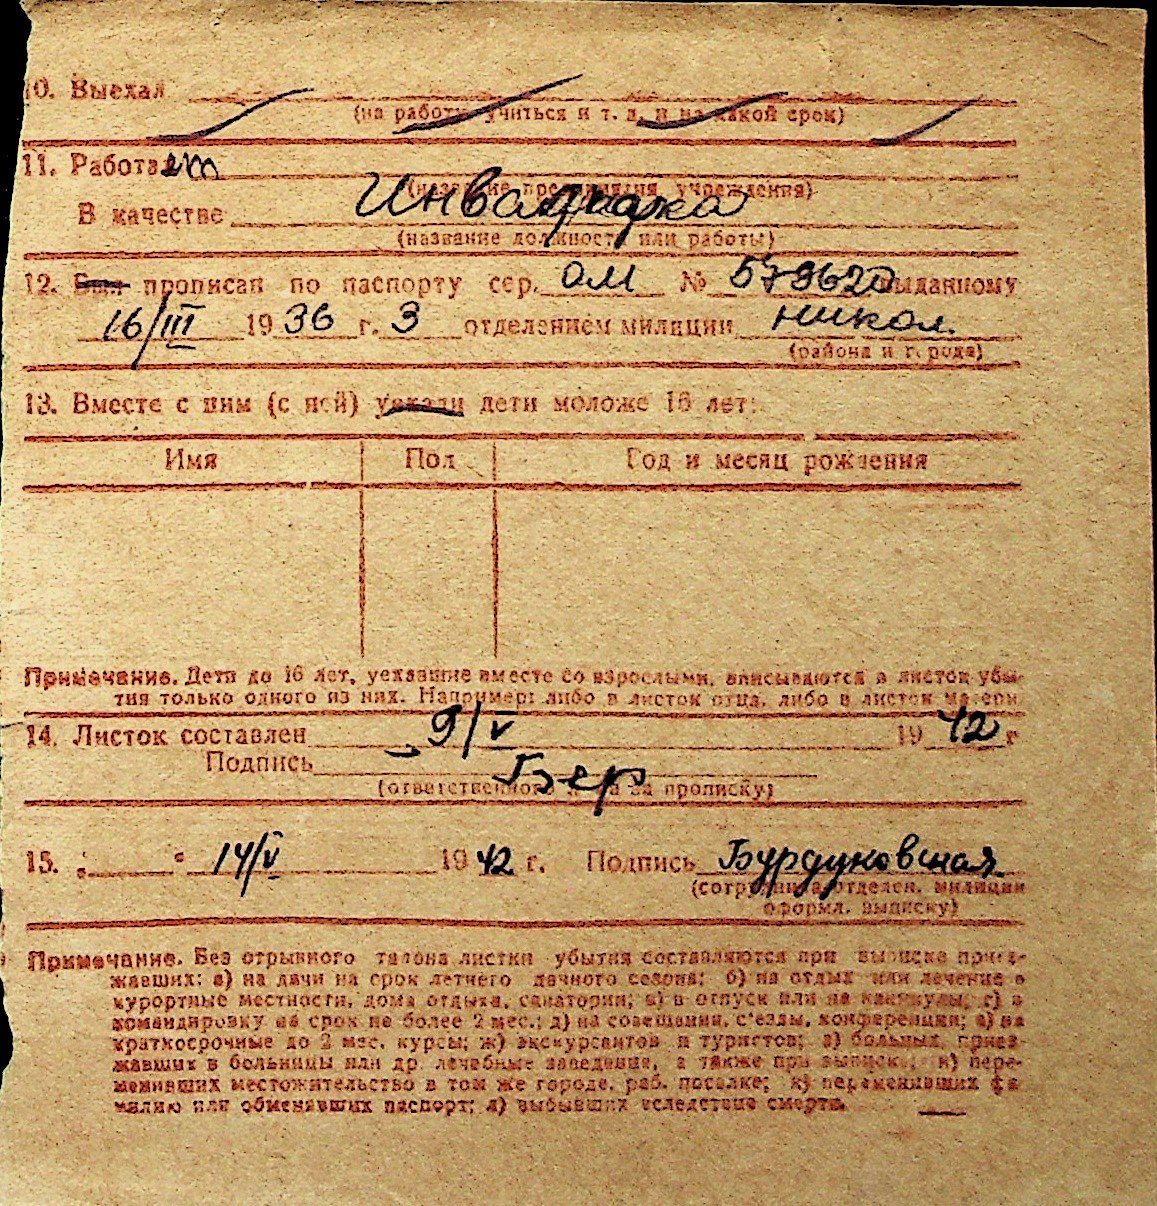 10. Выехал
(на работу, учиться и т. д. и на какой срок)
11. Работает
(название предприятия, учреждения)
В качестве Инвалидка
(название должности или работы)
12. Был прописан по паспорту сер. ОМ № 579620 выданному
16/III 1936 г. 3 отделением милиции Никол.
(района и города)
13. Вместе с ним (с ней) уехали дети моложе 16 лет:
Имя Пол Год и месяц рождения
Примечание. Дети до 16 лет, уехавшие вместе со взрослыми, вписываются в листок убы-
тия только одного из них. Например: либо в листок отца, либо в листок матери
14. Листок составлен 9/V 1942 г
Подпись Бер
(ответственного лица за прописку)
15. " " 14/V 1942 г. Подпись Бурдуковская
(сотрудника отделен. милиции
оформл. выписку)
Примечание. Без отрывного талона листки убытия составляются при выписке приез-
жавших: а) на дачи на срок летнего дачного сезона; б) на отдых или лечение в
курортные местности, дома отдыха, санатории; в) в отпуск или на каникулы; г) в
командировку на срок не более 2 мес.; д) на совещания, с'езды, конференции; е) на
краткосрочные до 2 мес. курсы; ж) экскурсантов и туристов; з) больных, приез-
жавших в больницы или др. лечебные заведения, а также при выписке: и) пере-
менивших местожительство в том же городе, раб. поселке; к) переменивших фа-
милию или обменявших паспорт; л) выбывших вследствие смерти.